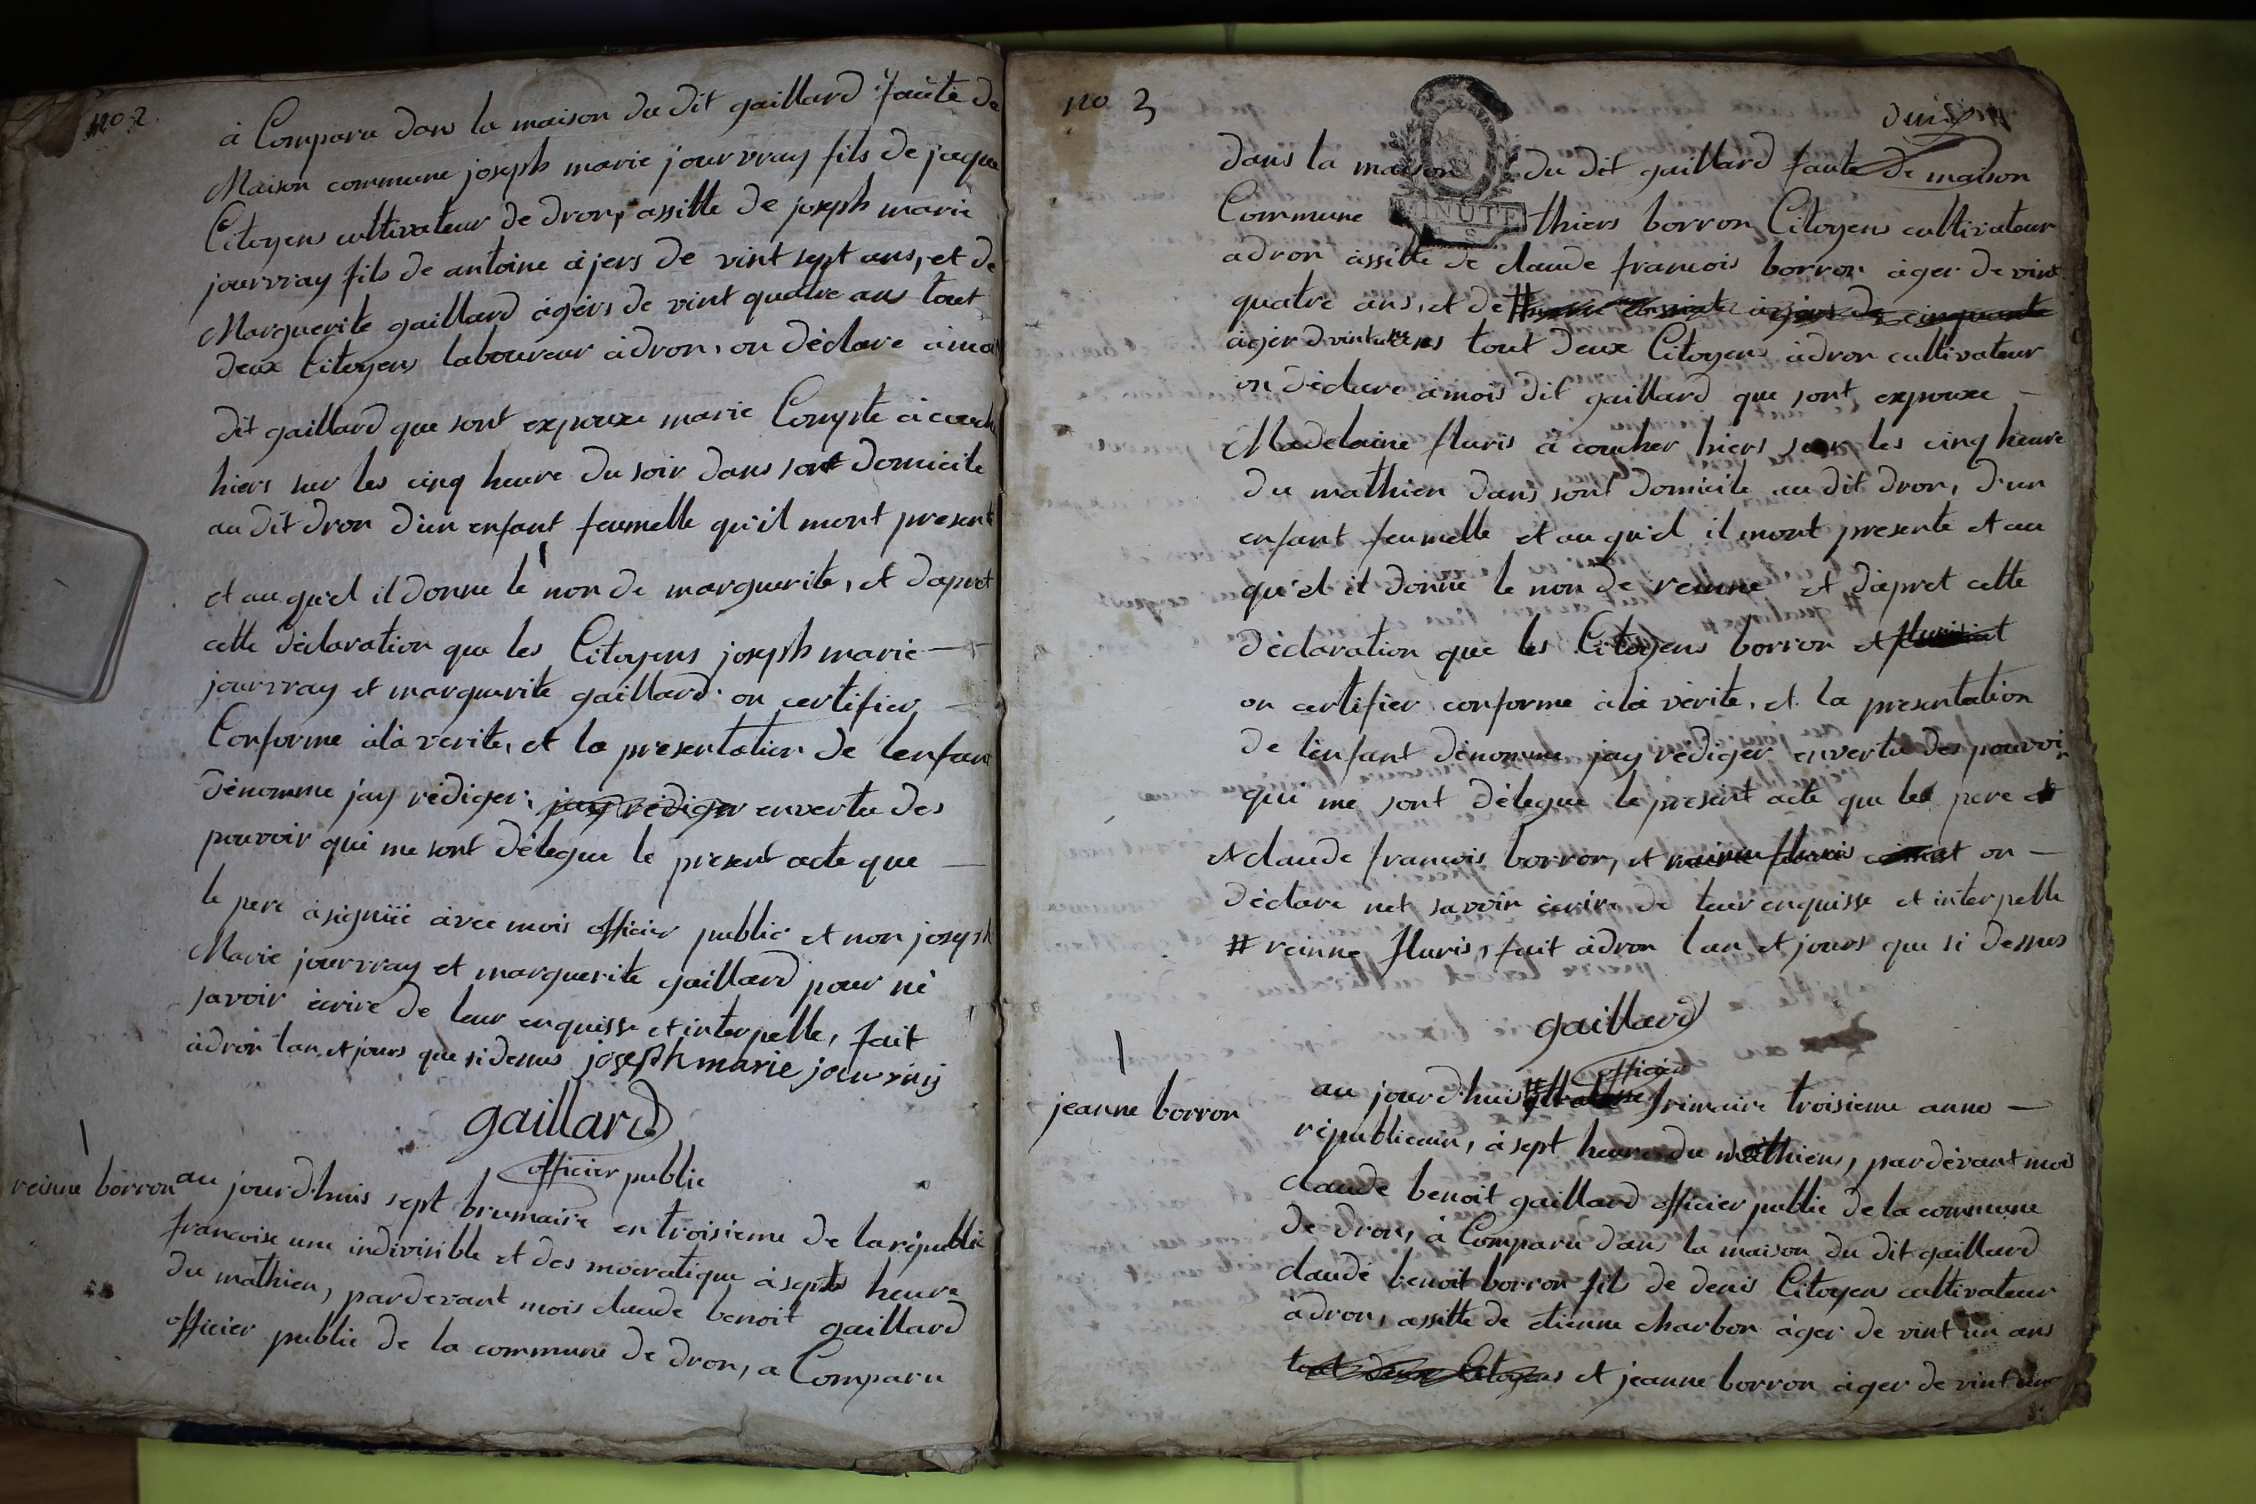 no 2.
à Comparu dans la maison du dit gaillard faute de
Maison commune joseph marie jourvray fils de jaque
Citoyens cultivateur de dron, assitte de joseph marie
jourvray fils de antoine àjers de vint sept ans, et de
Marguerite gaillard àgers de vint quatre ans tout
deux Citoyens laboureur àdron, on déclare àmoi
dit gaillard que sont expouxe marie Compte à couche
hiers sur les cinq heure du soir dans sont domicile
au dit dron d'un enfant feumelle qu'il mont present
et au qu'el il donne le non de marguerite, et d'apret
cette déclaration que les Citoyens joseph marie
jourvray et marguerite gaillard on certifier
Conforme àlà verite, et la presentation de lenfant
dénomme jay rédiger, jay rédiger envertu des
pouvoir qui me sont délegue le present acte que
le pere àsigniié avec mois officier public et non joseph
Marie jourvray et marguerite gaillard pour nè
savoir écrire de leur enquisse et interpelle, fait
àdron lan, et jours que sidessus joseph marie jourvray
gaillard
officier public
reinne borron
au jourd'huis sept brumaire en troisieme de la républic
francoise une indivisible et des mocratique à sept heure
du mathien, pardevant mois claude benoit gaillard
officier public de la commune de dron, a Comparu
no 3
deux
dans la maison du dit gaillard faute de maison
MINUTE
Commune thiers borron Citoyens cultivateur
adron assitte de claude francois borron àger de vint
quatre ans, et de # àgers de cinquante
àger d vint ans tout deux Citoyens àdron cultivateur
on déclare àmois dit gaillard que sont expouxe
Madelaine fluris à coucher hiers sur les cinq heure
du mathien dans sont domicile au dit dron, d'un
enfant feumelle et au qu'el il mont presente et au
qu'el il donne le non de reinne et d'apret cette
déclaration que les Citoyens borron et
on certifier conforme àlà vérite, et la presentation
de lenfant dénomme jay rédiger envertu des pouvoir
qui me sont délegue le present acte que les pere et
et claude francois borron, et fluris on
déclare net savoir écrire de leur enquisse et interpelle
# reinne fluris, fait àdron lan et jours que si dessus
gaillard
officier
jeanne borron
au jourd'huis frimaire troisieme anne
républicain, à sept heure du mathiens, pardévant mois
claude benoit gaillard officier public de la commune
de dron, à Comparu dans la maison du dit gaillard
claude benoit borron fils de denis Citoyens cultivateur
àdron, assitte de etienne charbon àger de vint un ans
tout deux Citoyens et jeanne borron àger de vint un